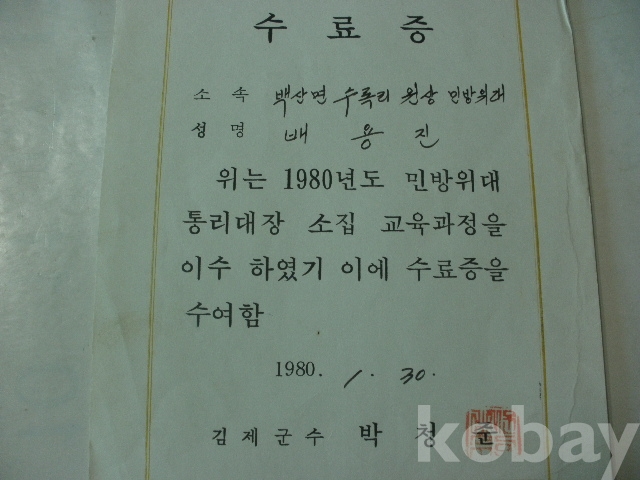 수료증
소속 백산면 수록리 원상 민방위대
성명 배용진
위는 1980년도 민방위대
통리대장 소집 교육과정을
이수 하였기 이에 수료증을
수여함
1980. 1. 30.
김제군수 박청준
kobay